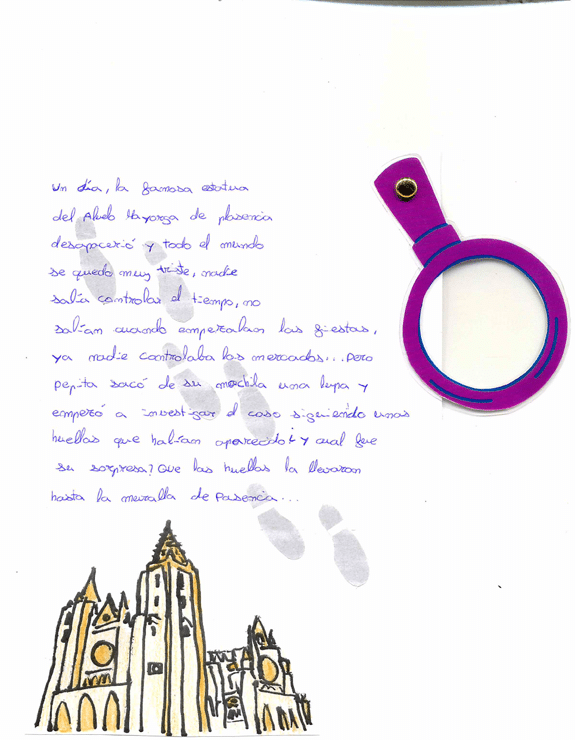 Un día, la famosa estatua
del Abuelo Mayorga de plasencia
desapareció y todo el mundo
se quedo muy triste, nadie
sabía controlar el tiempo, no
sabían cuando empezaban las fiestas,
ya nadie controlaba los mercados... Pero
pepita sacó de su mochila una lupa y
empezó a investigar el caso siguiendo unas
huellas que habían aparecido ¿y cual fue
su sorpresa? Que las huellas la llevaron
hasta la muralla de Pasencia...